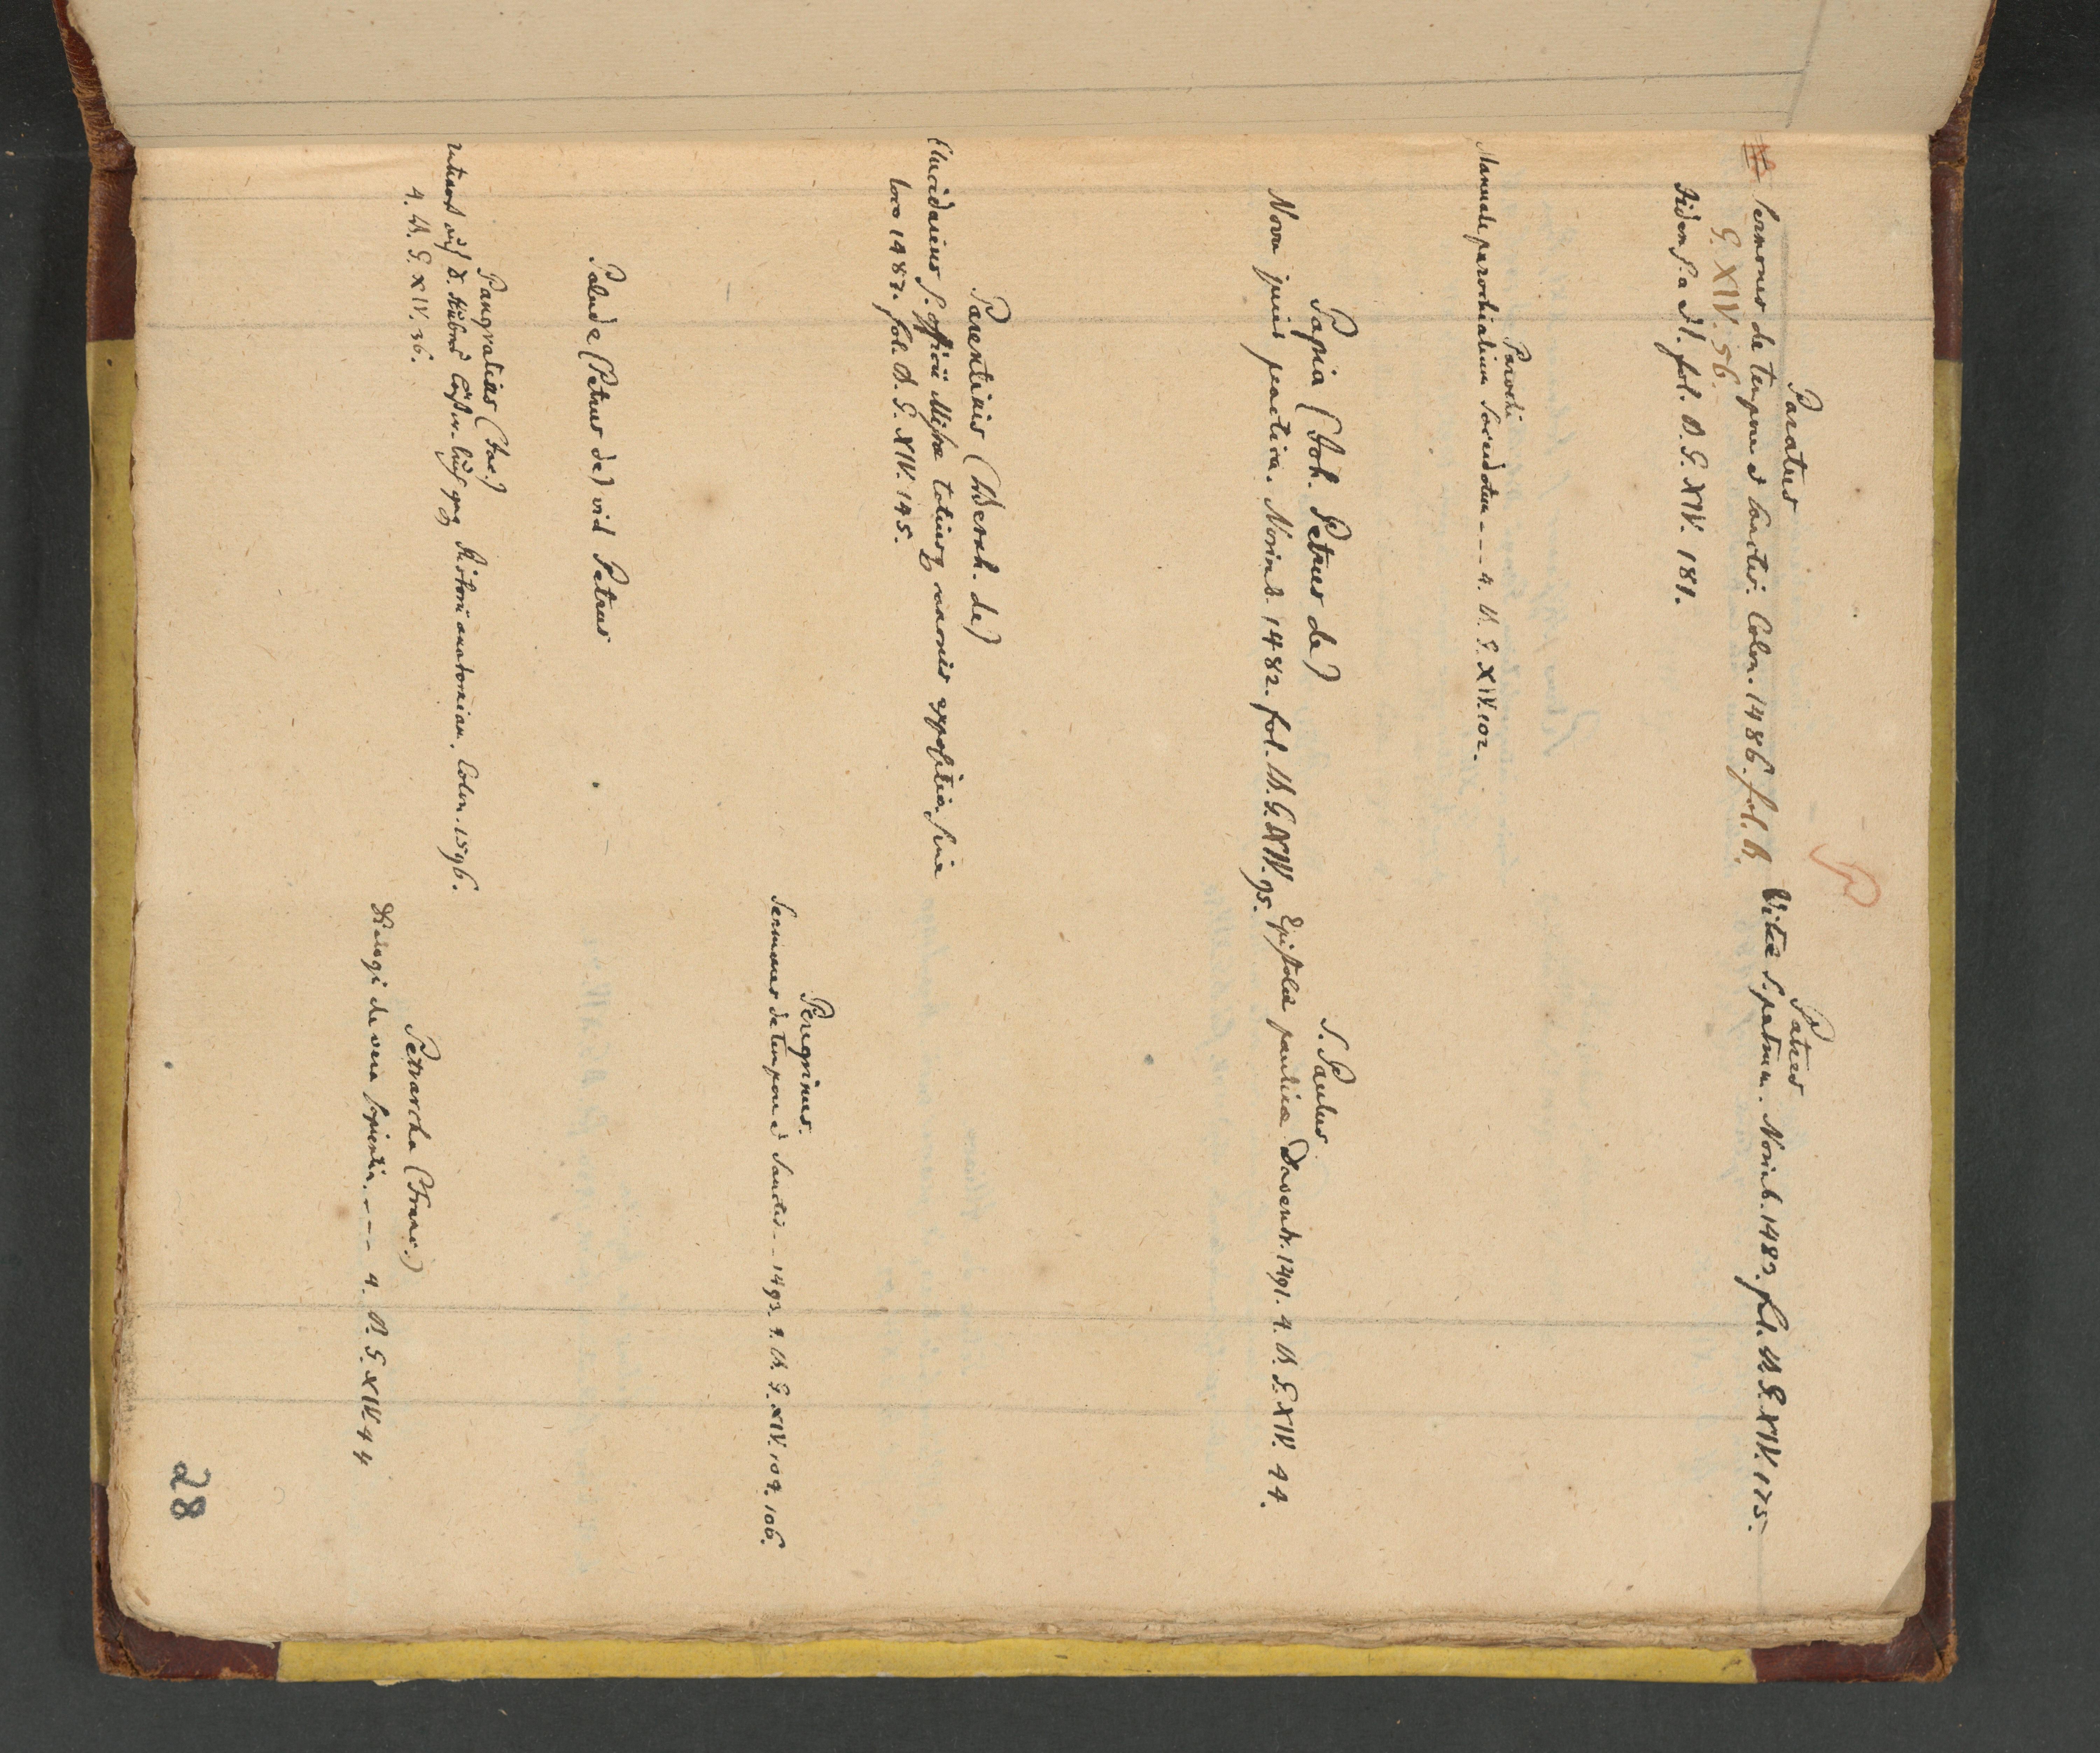 P
Paratus
Sermones de tempore et Sanctis. Colon. 1486. fol. B.
G. XIV. 56.
Eidem s. a et l. fol. B. G. XIV. 181.
Parochi
Manuale parochialium Sacerdotum - - - 4. B. G. XIV. 102.
Papia (Joh. Petrus de)
Nova juris practica. Norimb. 1482. fol. B. G. XIV. 95.
Parentinis (Bernh. de)
Elucidarius s. officii Missæ totiusq canonis expositio, sine
loco 1487. fol. B. G. XIV. 145.
Palude (Petrus de) vid Petrus
Pangratius (Frc.)
auß D. Rhetoric Colon. 1596.
4. B. G. XIV. 36.
Patres
Vitæ S. patrum. Norimb. 1483. fol. B. G. XIV. 175.
S. Paulus
Epistolæ paulinæ Daventr. 1491. 4. B. G. XIV. 44.
Peregrinus.
Sermones de tempore et Sanctis - - 1493. 4. B. G. XIV. 104. 106.
Petrarcha (Franc.)
Dialogi de vera sapientia. - - - 4. B. G. XIV. 44
28